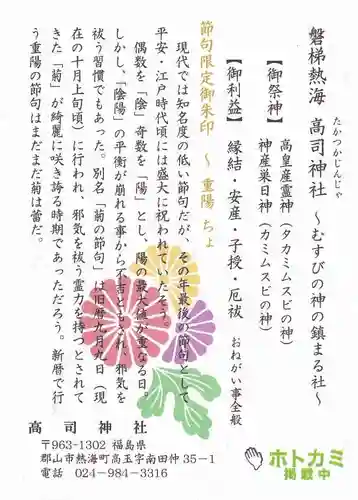 磐梯熱海 高司神社 ～むすびの神の鎮まる社～
たかつかじんじゃ
【御祭神】 高皇産霊神(タカミムスビの神)
神産巣日神(カミムスビの神)
【御利益】 縁結・安産・子授・厄祓
おねがい事全般
節句限定御朱印 ～ 重陽 ちょ
現代では知名度の低い節句だが、その年最後の節句として
平安・江戸時代頃には盛大に祝われていたそう。
偶数を「陰」奇数を「陽」とし、陽の最大値が重なる日。
しかし、「陰陽」の平衡が崩れる事から不吉とされ、邪気を
祓う習慣でもあった。別名「菊の節句」は旧暦九月九日(現
在の十月上旬頃)に行われ、邪気を祓う霊力を持つとされて
きた「菊」が綺麗に咲き誇る時期であっただろう。新暦で行
う重陽の節句はまだまだ菊は蕾だ。
高司神社
〒963-1302 福島県
郡山市熱海町高玉字南田仲35－1
電話 024-984-3316
ホトカミ
掲載中